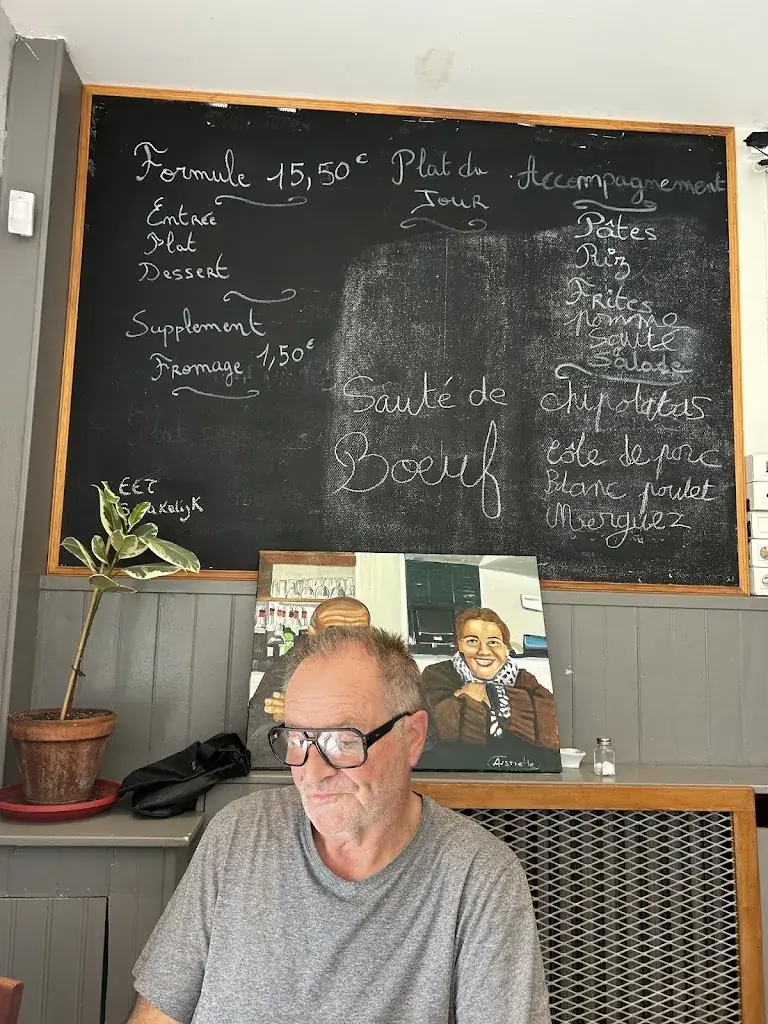 Formule 15,50€
Entrée
Plat
Dessert
Supplement
Fromage 1,50€
EET
Plat du
Jour
Sauté de
Boeuf
Accompagnement
Pâtes
Riz
Frites
pomme
Sauté
Salade
Chipolatas
Côte de porc
Blanc poulet
Merguez